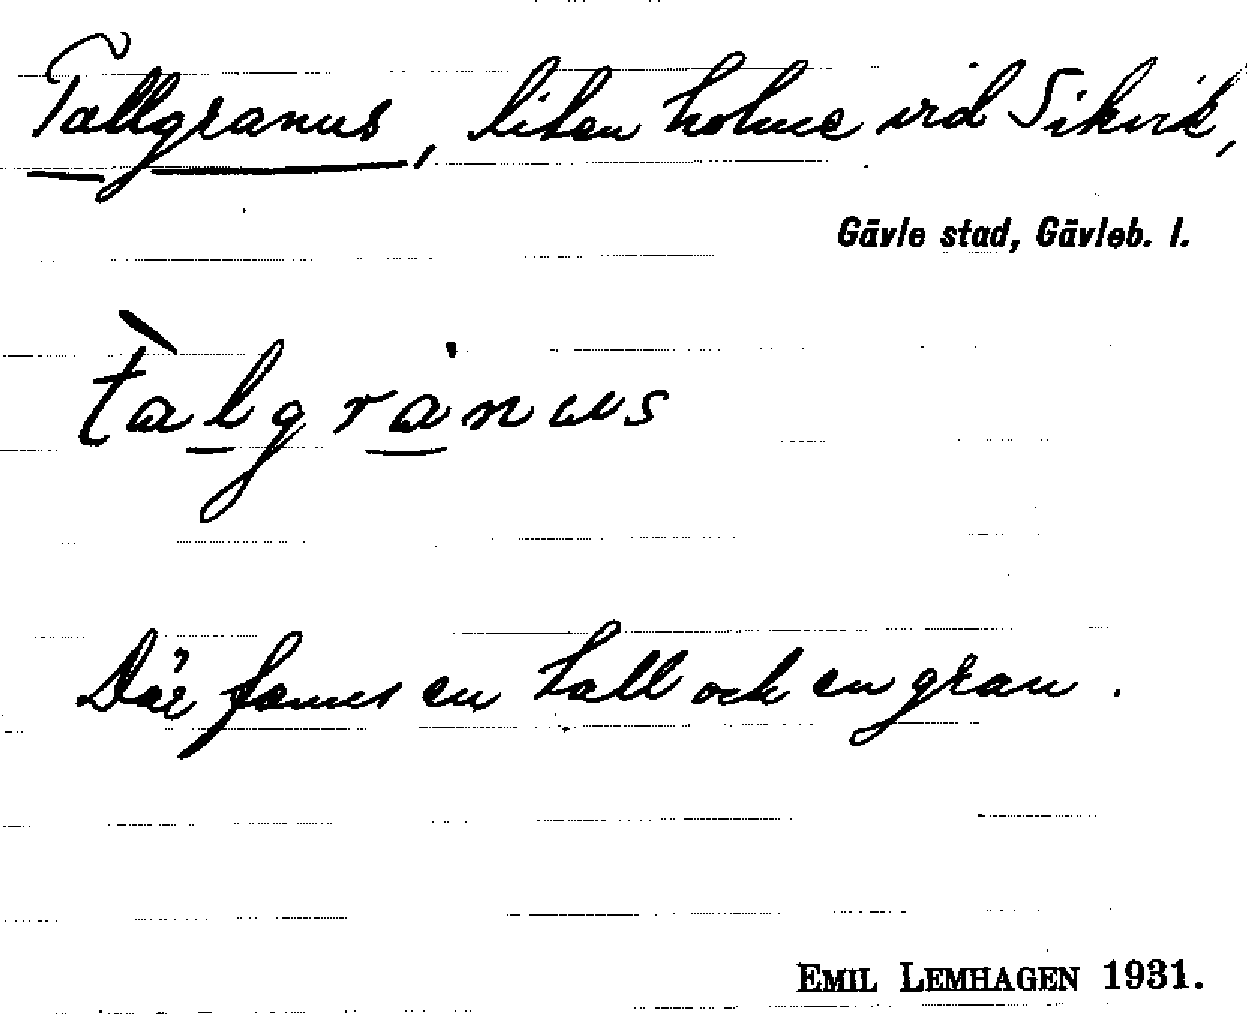 Tallgranus, liten holme vid Sikvik,
Gävle stad, Gävleb. l.
t̀a̱ḻgrạ̍nus
Där fanns en tall och en gran.
EMIL LEMHAGEN 1931.